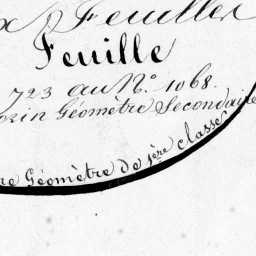 Feuilles
Feuille
723 au N.º 1068.
Géomètre Secondaire
Géomètre de 1ère classe